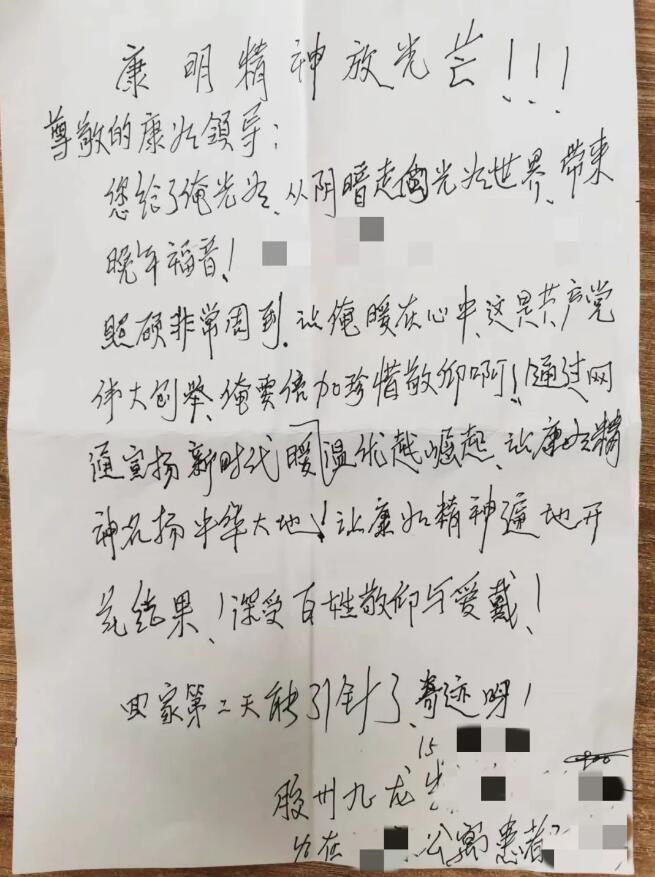 康明精神放光芒!!!
尊敬的康明领导:
您给了俺光明、从阴暗走向光明世界、带来
晚年福音!
照顾非常周到.让俺暖在心中、这是共产党
伟大创举、俺要倍加珍惜敬仰啊!通过网
通宣扬新时代暖温优越崛起、让康明精
神名扬中华大地!让康明精神遍地开
花结果!深受百姓敬仰与爱戴!
回家第二天能引针了、奇迹呀!
15
胶州九龙
公寓患者